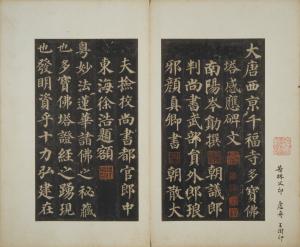 大唐西京千福寺多寶佛
塔感應碑文
南陽岑勛撰 朝議郎
判尚書武部員外郎琅
邪顏真卿書 朝散大
夫撿校尚書都官郎中
東海徐浩題額
粵妙法蓮華諸佛之秘藏
也多寶佛塔證經之踴現
也發明資乎十力弘建在